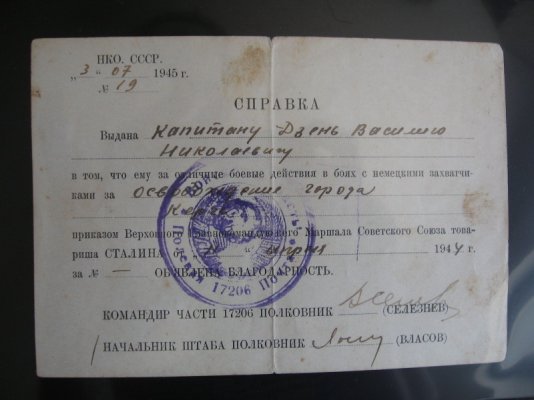 НКО. СССР.
„3“ 07 1945 г.
№ 19
СПРАВКА
Выдана Капитану Дзень Василию
Николаевичу
в том, что ему за отличные боевые действия в боях с немецкими захватчи-
ками за Освобождение города
Керчь
приказом Верховного Главнокомандующего Маршала Советского Союза това-
рища СТАЛИНА „ “ апреля 1944 г.
за № — ОБ'ЯВЛЕНА БЛАГОДАРНОСТЬ.
Полевая 17206 Почта
КОМАНДИР ЧАСТИ 17206 ПОЛКОВНИК (СЕЛЕЗНЕВ)
НАЧАЛЬНИК ШТАБА ПОЛКОВНИК (ВЛАСОВ)